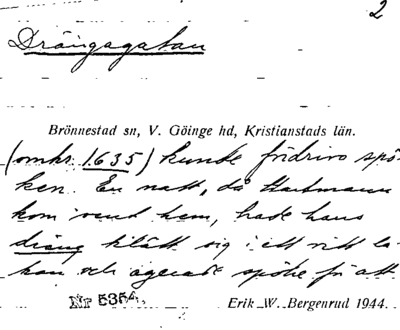 2
Drängagatan
Brönnestad sn, V. Göinge hd, Kristianstads län.
(omkr. 1635) kunde fördriva spö-
ken. En natt, då Hartmann
kom vand hem, hade hans
dräng klätt sig i ett vitt la-
kan och agerade spöke för att
Nr 5354. Erik W. Bergenrud 1944.